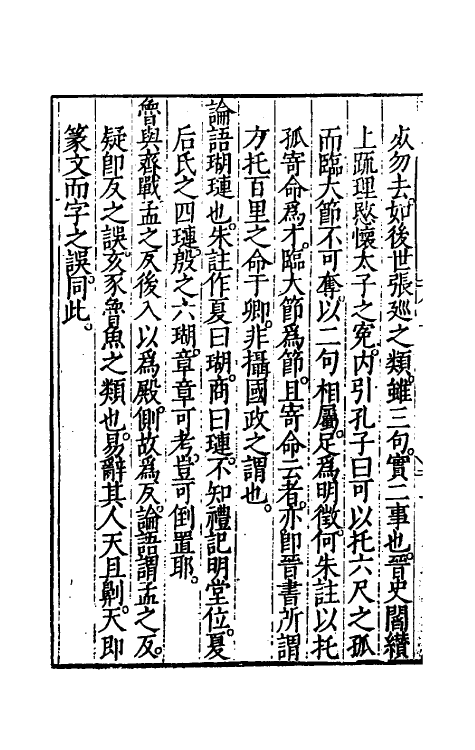 必勿去如後世張巡之類雖三句實二事也晉史閻纘
上䟽理愍懷太子之寃内引孔子曰可以托六尺之孤
而臨大節不可奪以二句相屬足爲明徵何朱註以托
孤寄命爲才臨大節爲節且寄命云者亦卽晉書所謂
方托百里之命于卿非攝國政之謂也
論語瑚璉也朱註作夏曰瑚商曰璉不知禮記明堂位夏
后氏之四璉殷之六瑚章章可考豈可倒置耶
魯與齊戰孟之反後入以爲殿側故爲反論語謂孟之反
疑卽反之誤亥豕魯魚之類也易辭其人天且劓天卽
篆文而字之誤同此